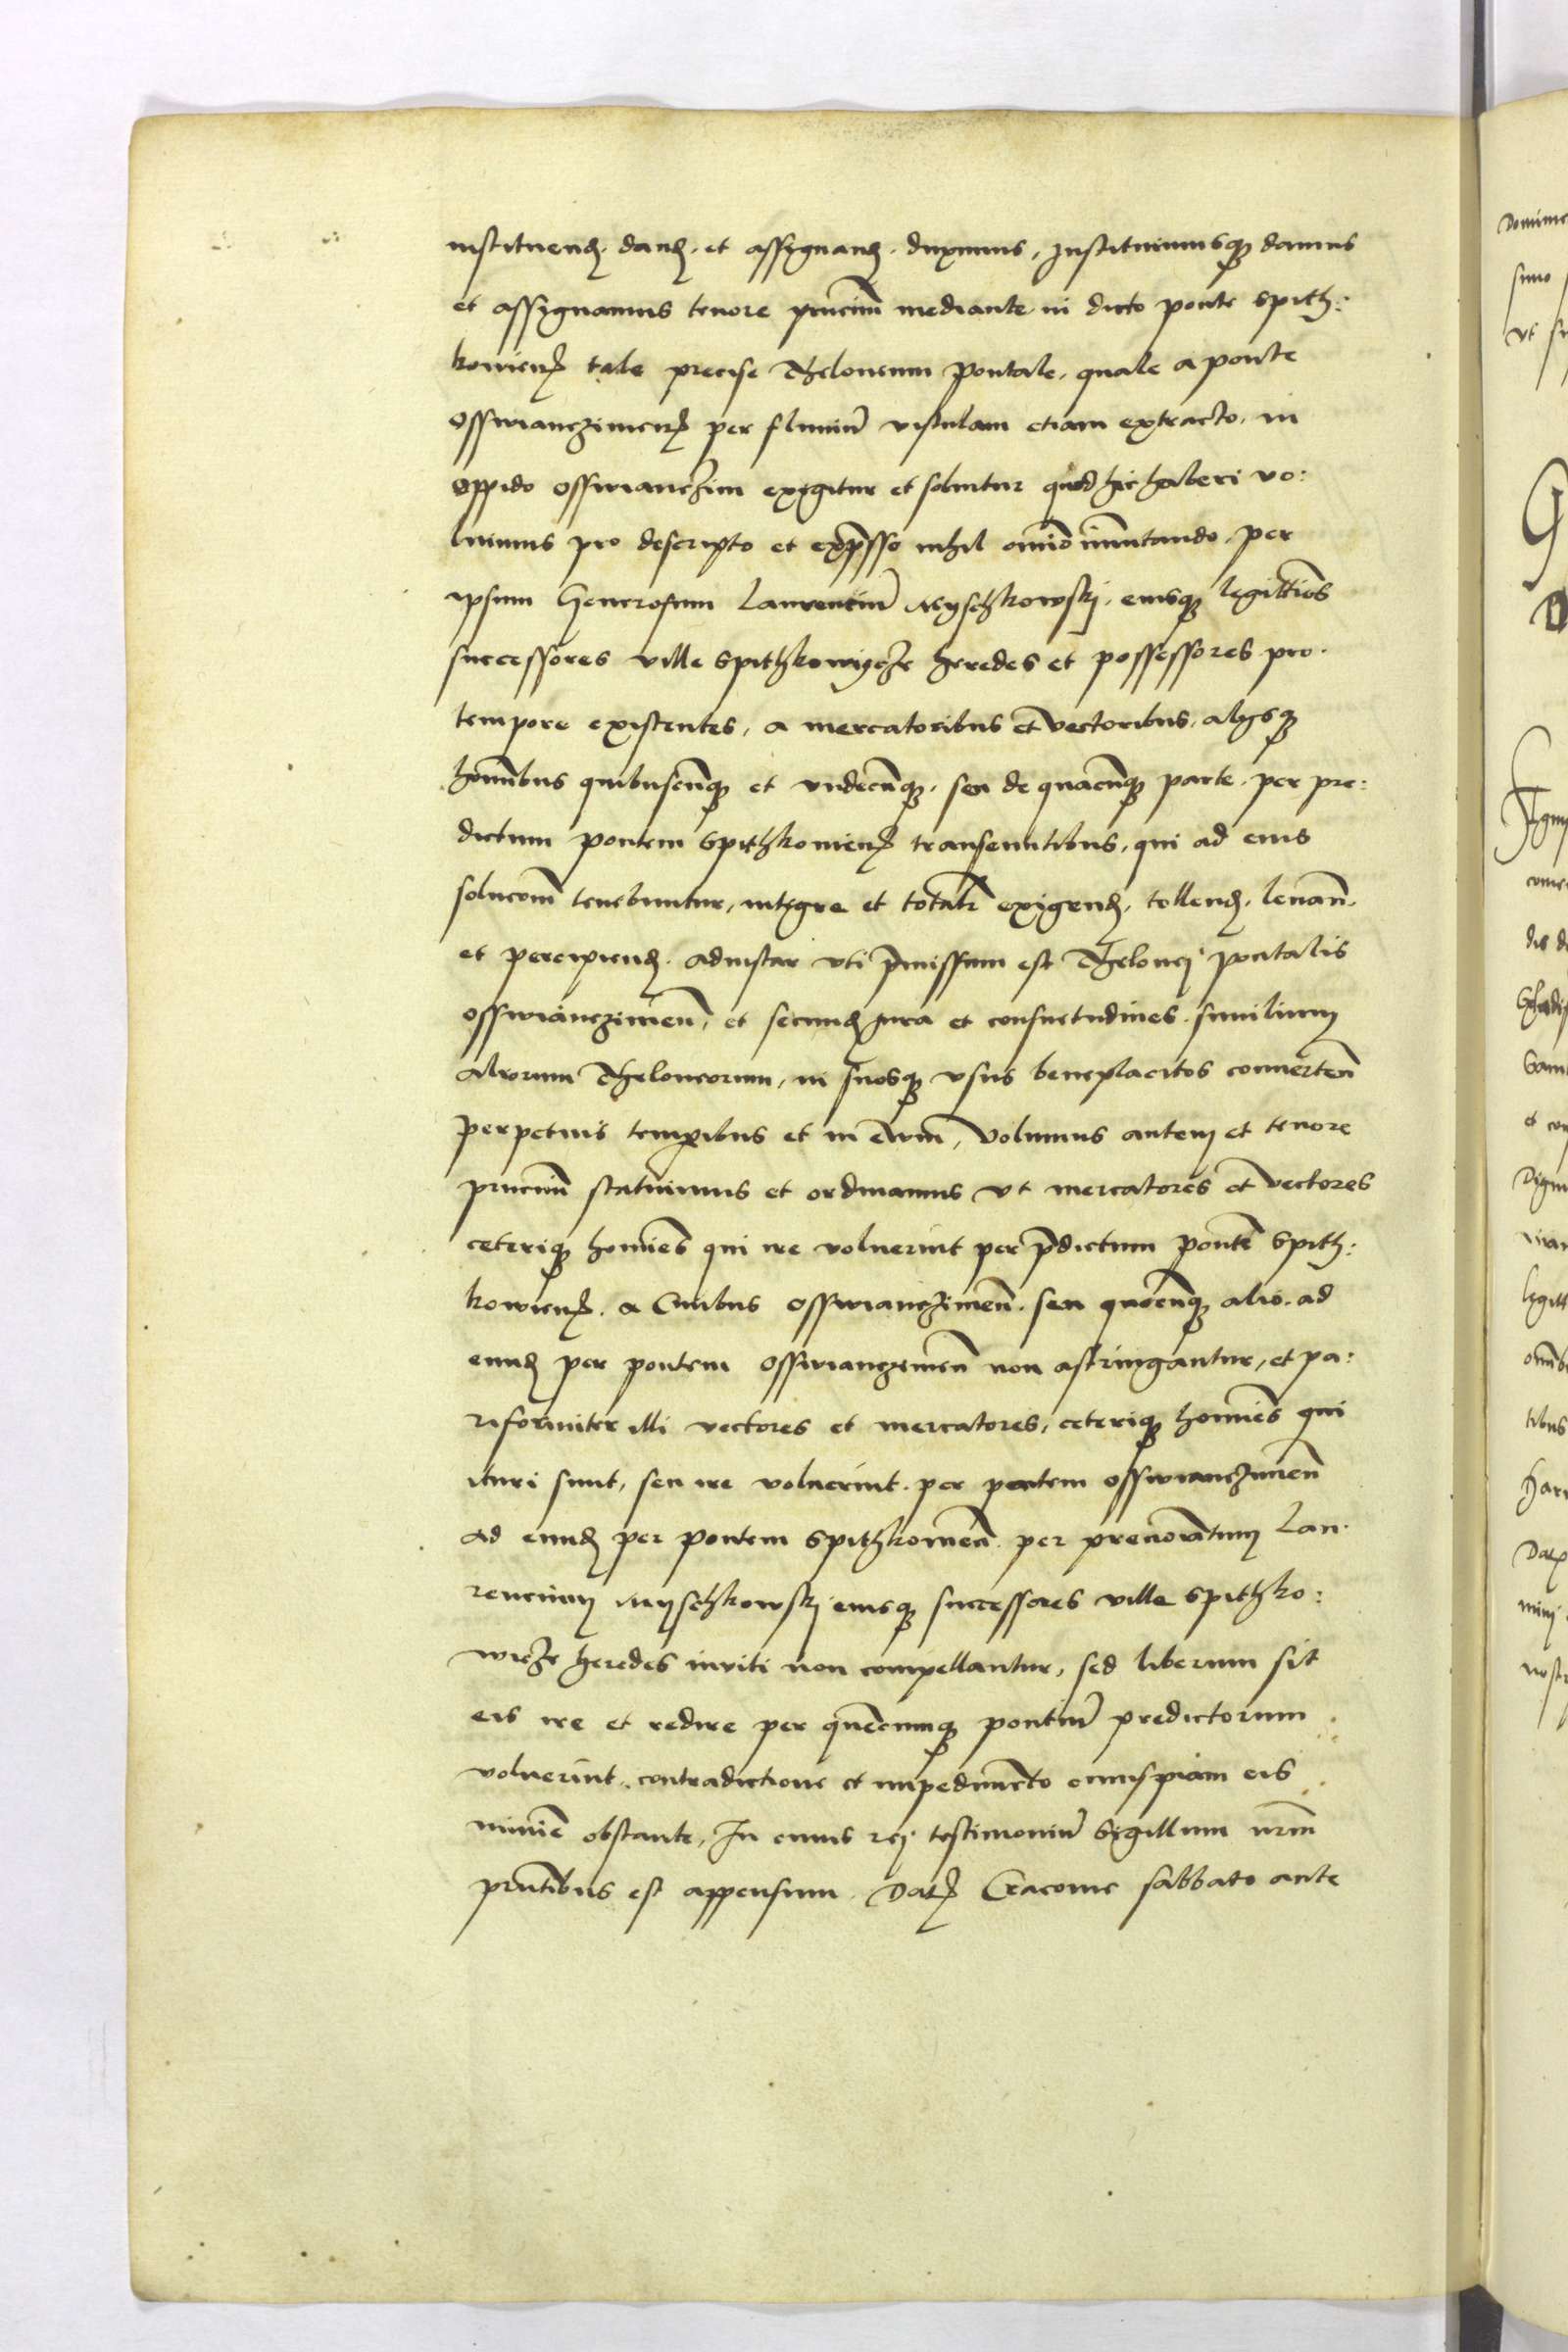 instituend. dand. et assignand. duximus, Instituimusq damus
et assignamus tenore pncium mediante in dicto ponte Spith:
kouien tale precise Theloneum Pontale, quale a ponte
Osswianczimen per fluuiu vistulam etiam extracto, in
oppido osswianczim exigitur et soluitur quod hic haberi vo:
luimus pro descripto et expsso nihil omnio immutando, per
ipsum Generosum Laurenciu Myschkowskj, eiusq legittios
successores ville Spithkowycze heredes et possessores pro
tempore existentes, a mercatoribus et vectoribus, alijsq
hominbus quibuscunq et vndecunq, seu de quacunq parte, per pre:
dictum pontem Spithkouien transeuntibus, qui ad eius
solucom tenebuntur, integre et totalr exigend, tollend, leuan.
et percipiend. adinstar vti pmissum est Thelonej pontalis
osswianczimen, et secund iura et consuetudines similium
aliorum Theloneorum, in suosq vsus beneplacitos conuerten
perpetuis temporibus et in eum, Volumus autem et tenore
pncium statuimus et ordinamus vt mercatores et vectores
ceteriq homies qui ire voluerint per pdictum ponte Spith:
kouien. a Ciuibus osswianczimen. seu quocunq alio. ad
eund per pontem osswianczimen non astringantur, et pa:
riformiter illi vectores et mercatores, ceteriq homies qui
ituri sunt, seu ire voluerint per pontem osswianczimen
ad eund per pontem Spithkouien per prenoiatum Lau:
rencium Myschkowskj eiusq successores ville Spithko:
wicze heredes inuiti non compellantur, sed liberum sit
eis ire et redire per quecunq pontiu predictorum
voluerint, contradictione et impedimeto cuiuspiam eis
minime obstante, In cuius rej testimoniu Sigillum nrm
pntibus est appensum. Dat Cracouie sabbato ante